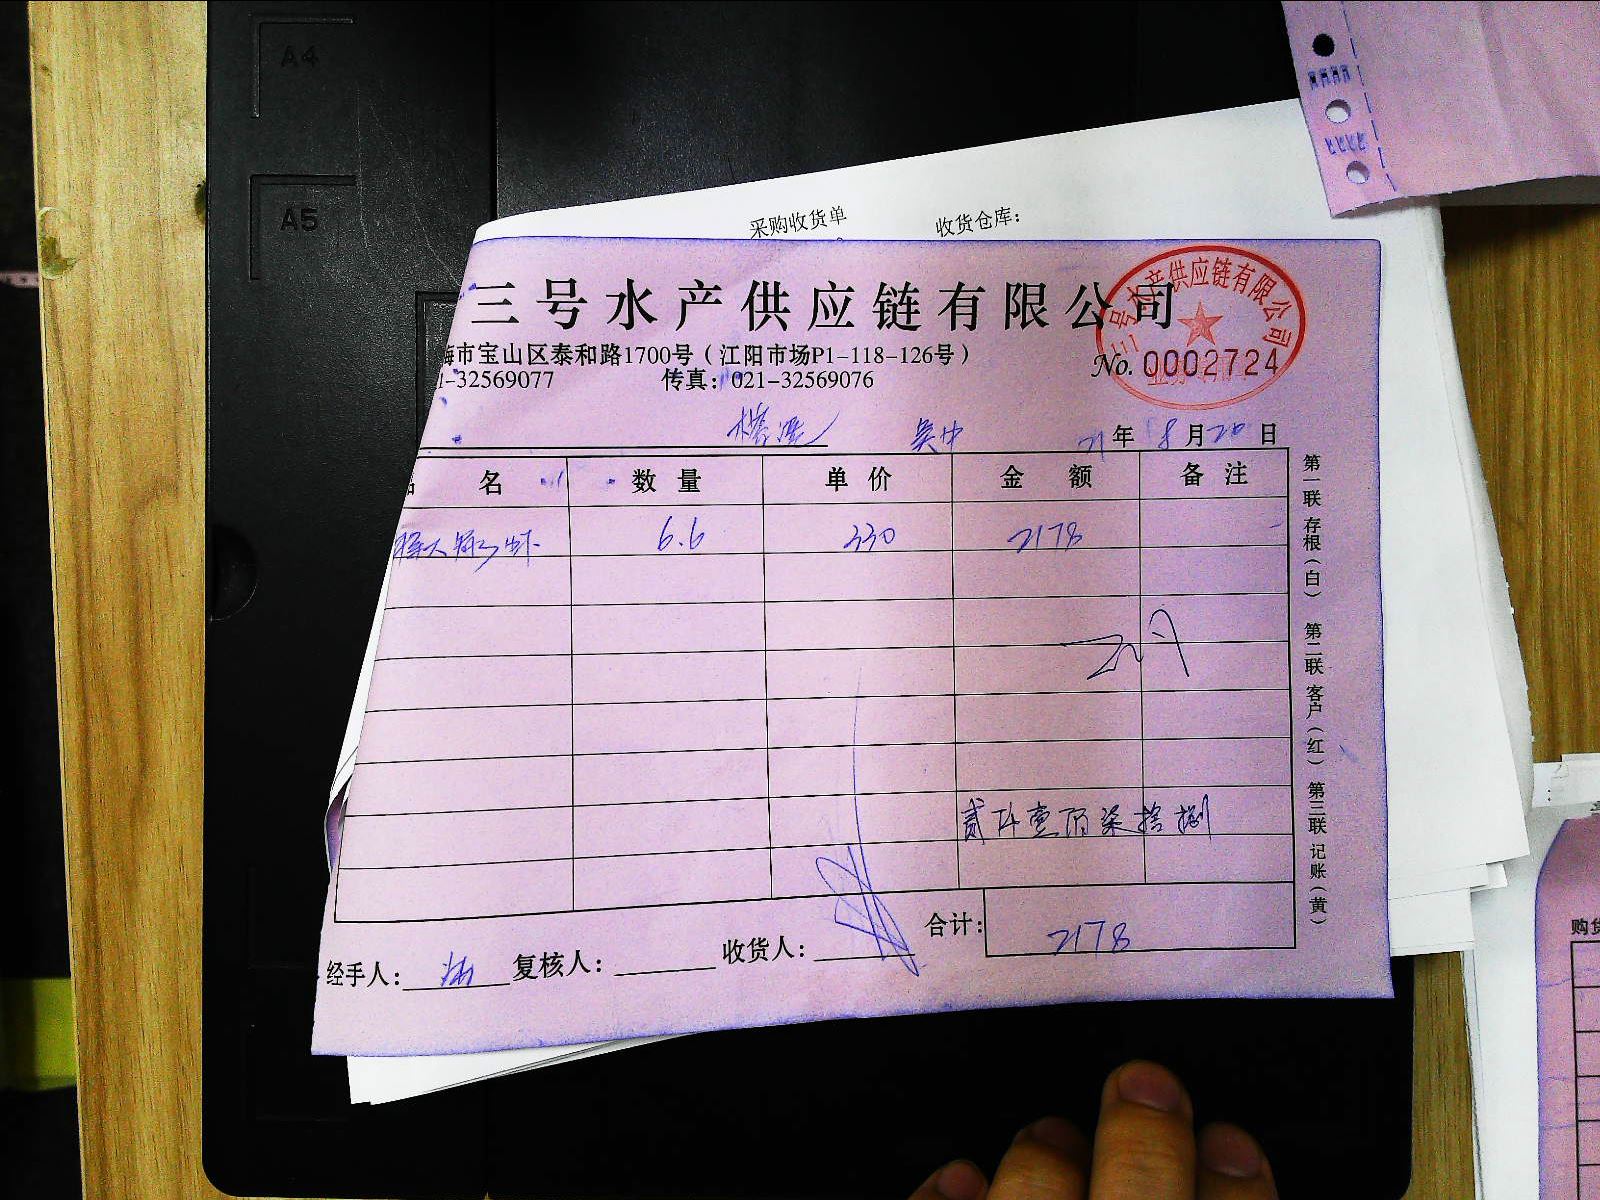 A4
A5
采购收货单 收货仓库：
三号水产供应链有限公司
三号水产供应链有限公司
海市宝山区泰和路1700号（江阳市场P1-118-126号）
1-32569077 传真：021-32569076
No. 0002724
吴中 21年 8月20日
品名 数量 单价 金额 备注
6.6 330 2178
贰仟壹佰柒拾捌
合计： 2178
经手人： 复核人： 收货人：
第一联 存根（白） 第二联 客户（红） 第三联 记账（黄）
购货